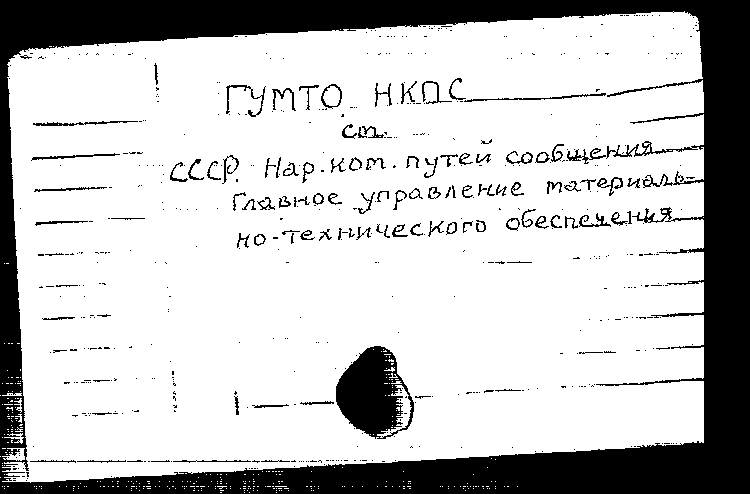 ГУМТО НКПС
см.
СССР. Нар. ком. путей сообщения
Главное управление материаль-
но-технического обеспечения